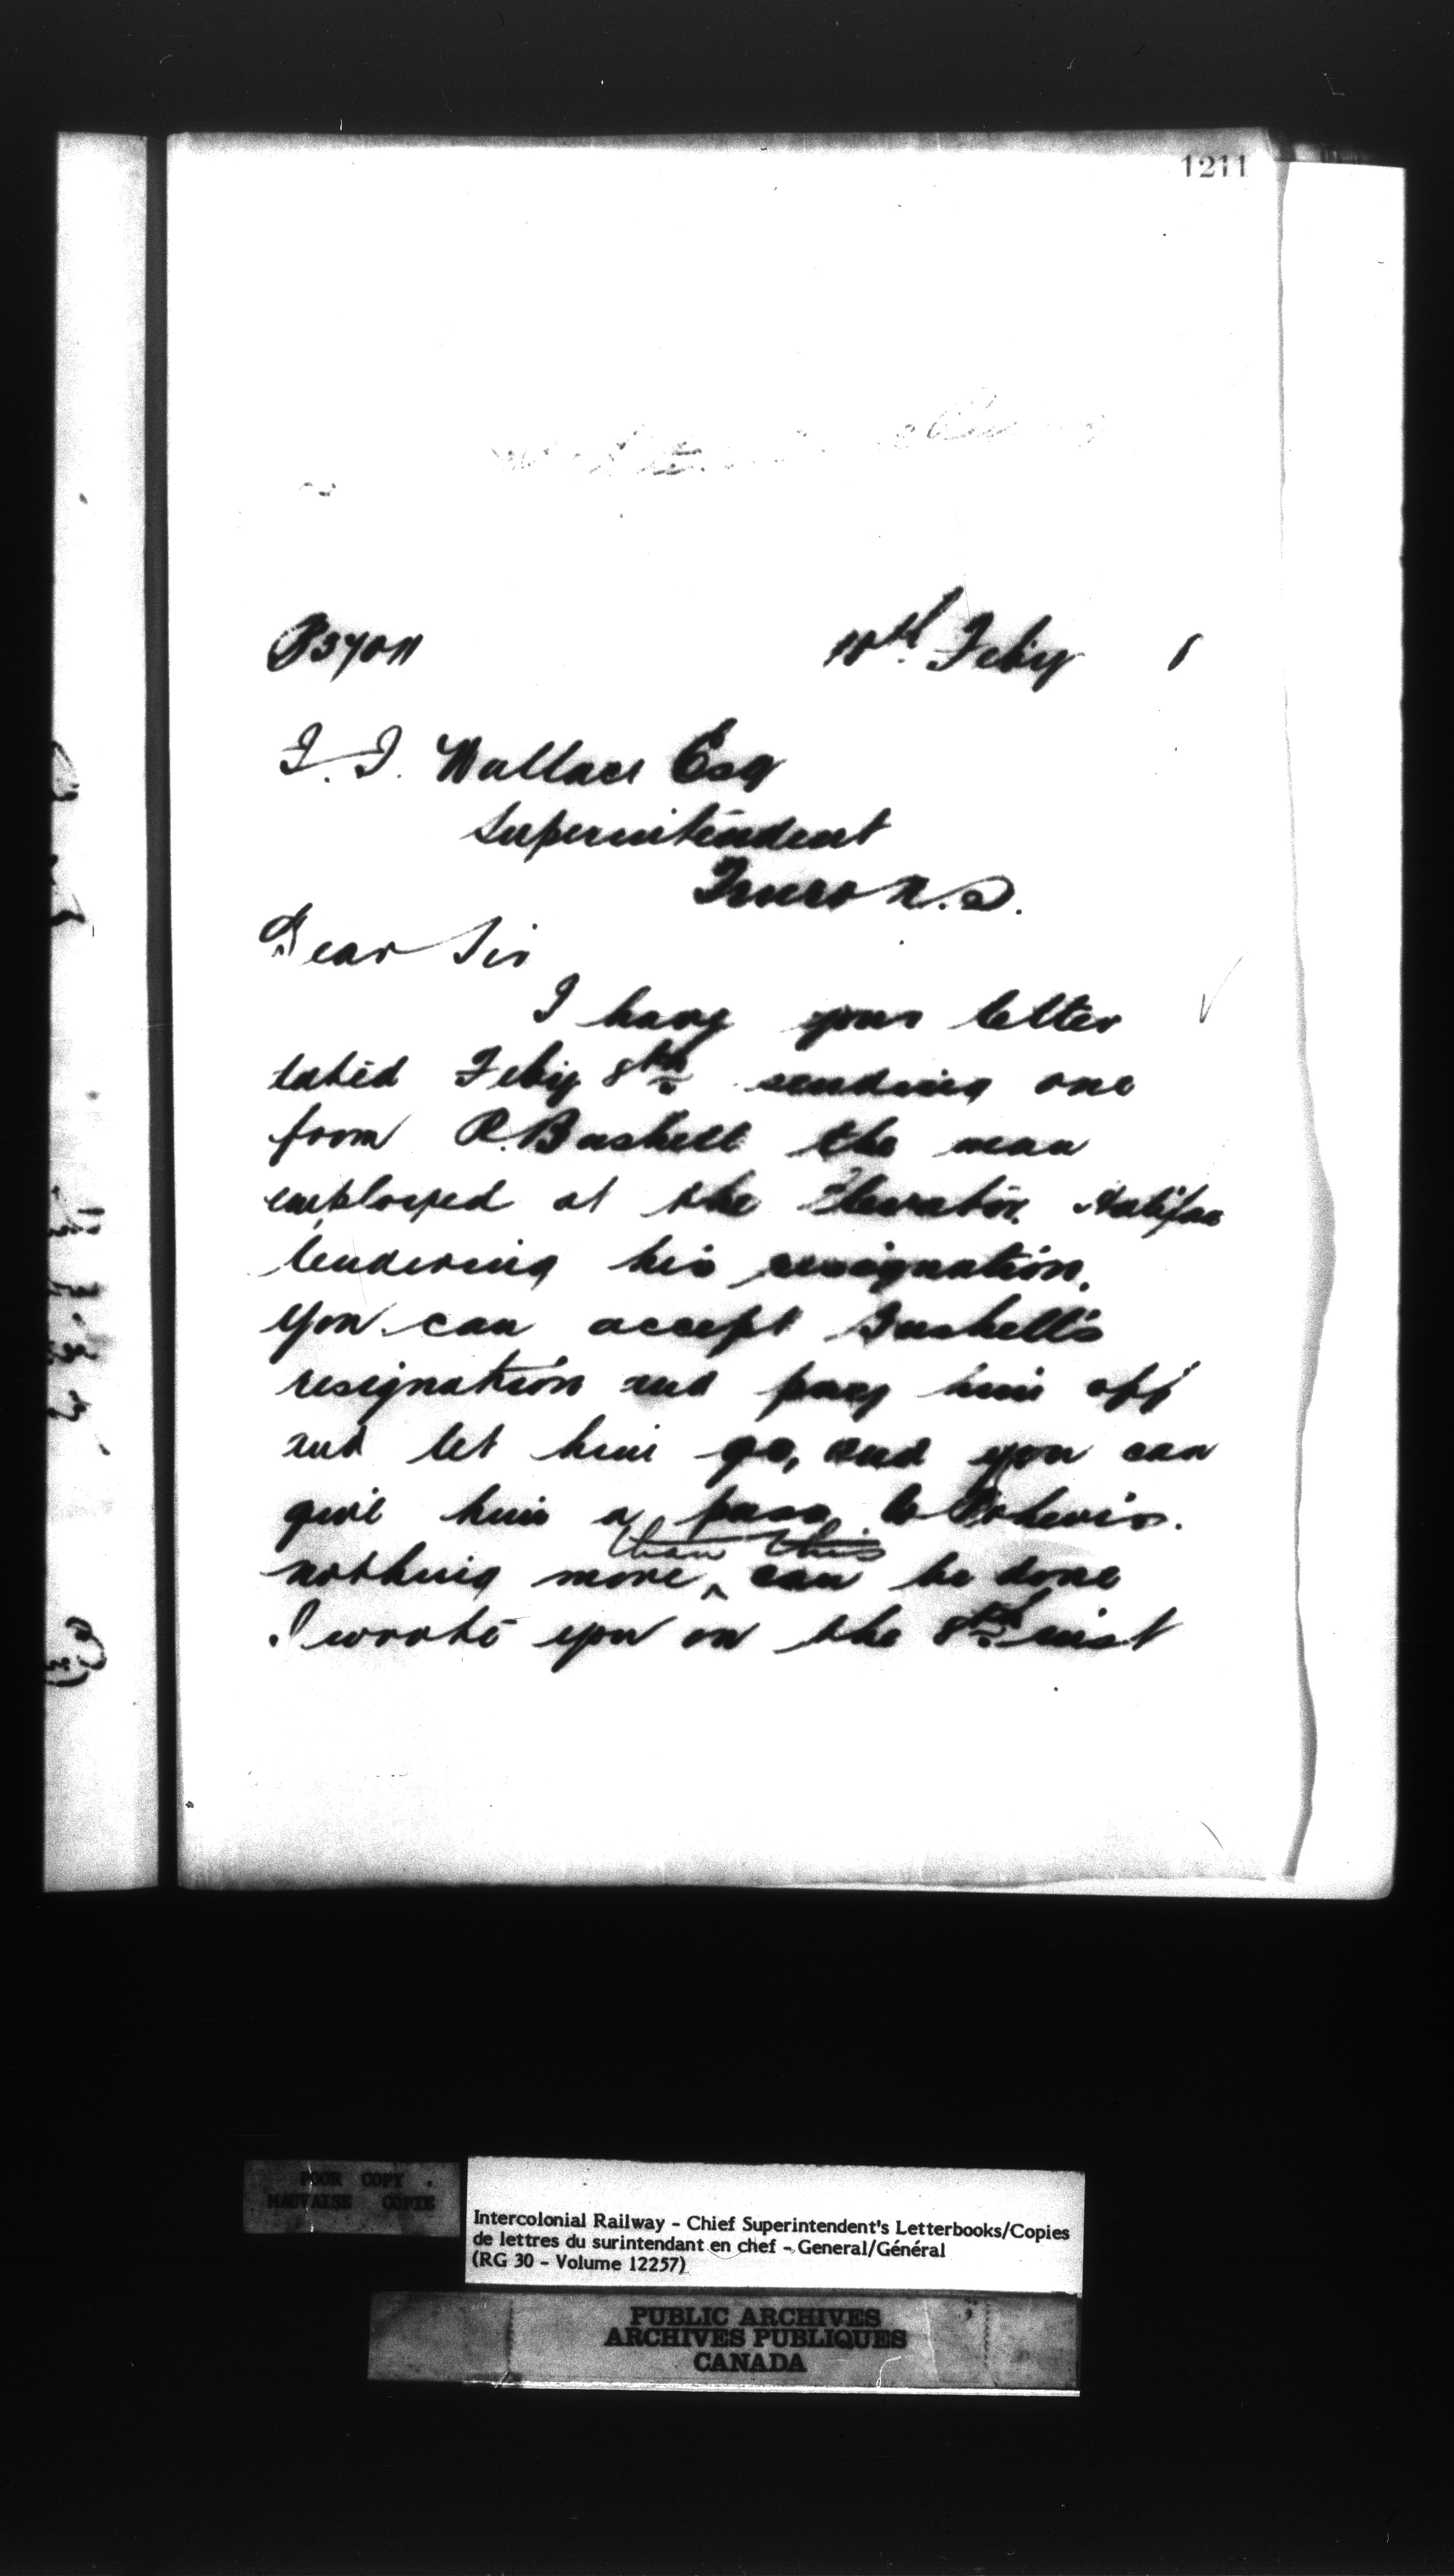 1211
Feby
Wallace Esq
Superintendent
Truro N.S.
Dear Sir
I have your letter
dated Feby 8th sending one
from R. Bushell the man
employed at the Elevator Halifax
tendering his resignation.
You can accept Bushell's
resignation and pay him off
and let him go, and you can
give him a pass to
than this
nothing more ^ can be done
I wrote you on the 8th inst
POOR COPY
MAUVAISE COPIE
Intercolonial Railway - Chief Superintendent's Letterbooks/Copies
de lettres du surintendant en chef - General/Général
(RG 30 - Volume 12257)
PUBLIC ARCHIVES
ARCHIVES PUBLIQUES
CANADA